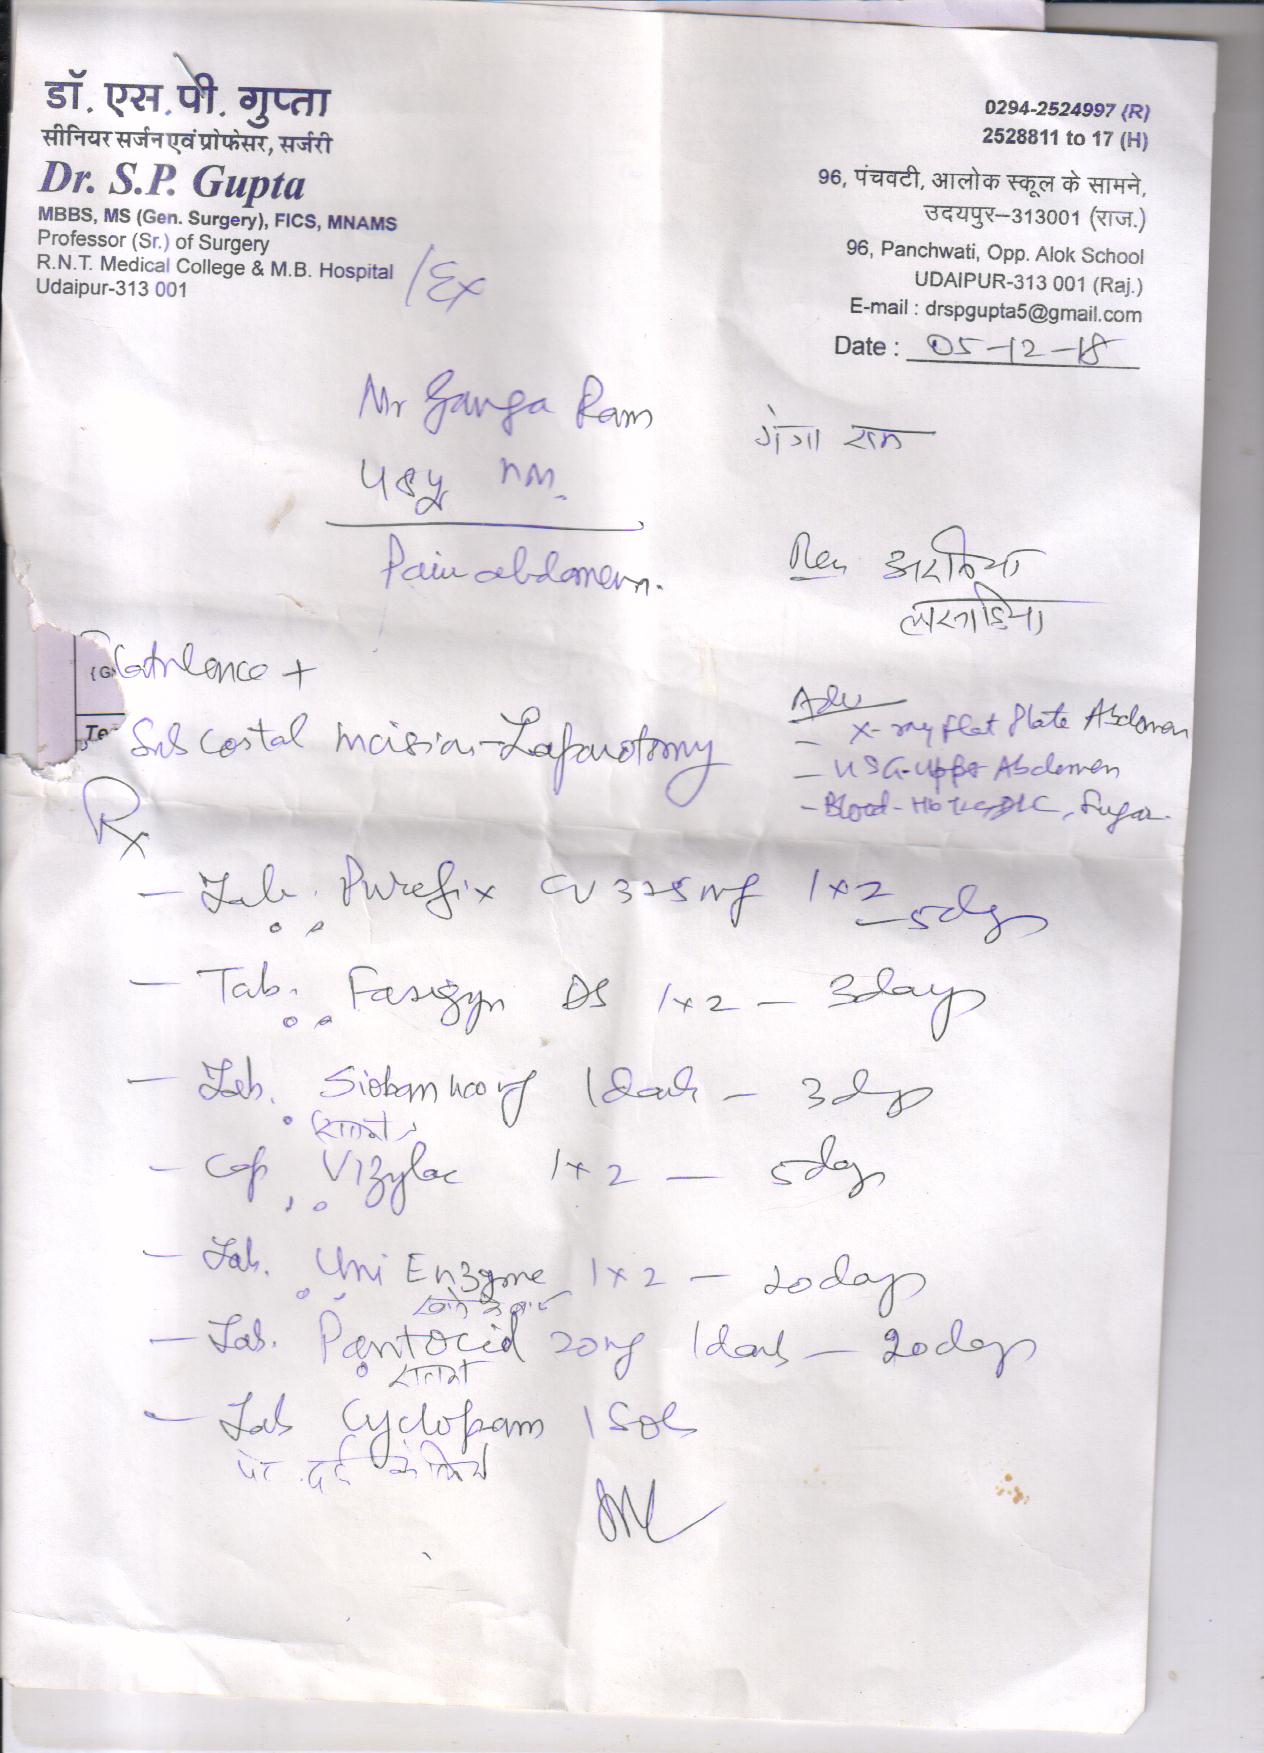 डॉ. एस.पी. गुप्ता
सीनियर सर्जन एवं प्रोफेसर, सर्जरी
Dr. S.P. Gupta
MBBS, MS (Gen. Surgery), FICS, MNAMS
Professor (Sr.) of Surgery
R.N.T. Medical College & M.B. Hospital
Udaipur-313 001
/Ex
0294-2524997 (R)
2528811 to 17 (H)
96, पंचवटी, आलोक स्कूल के सामने,
उदयपुर–313001 (राज.)
96, Panchwati, Opp. Alok School
UDAIPUR-313 001 (Raj.)
E-mail : drspgupta5@gmail.com
Date : 05-12-18
Mr Ganga Ram
गंगा राम
Pain abdomen.
Flatulence +
Sub costal Incision - Laparotomy
Adv
- X-ray flat Plate Abdomen
- USG-Upper Abdomen
- Blood - Hb TLC, DLC, Sugar.
Rx
- Tab. Purefix CV 325mg 1x2 - 5days
- Tab. Fasigyn DS 1x2 - 3days
- Tab. 400mg 1 daily - 3days
- Cap. Vizylac 1x2 - 5days
- Tab. Uni Enzyme 1x2 - 20days
- Tab. Pantocid 20mg 1 daily - 20days
- Tab Cyclopam 1 SOS
पेट दर्द के लिये